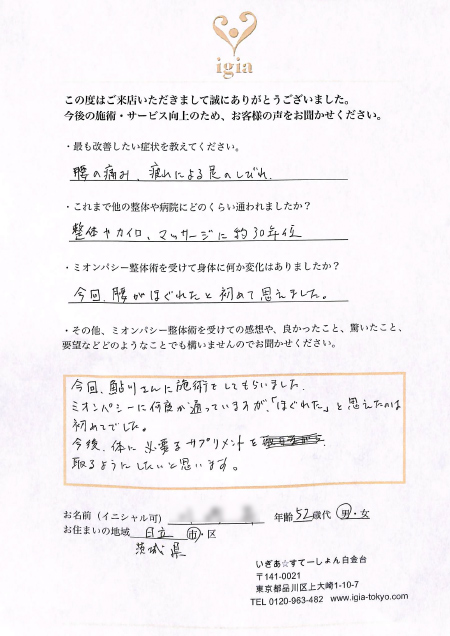 igia
この度はご来店いただきまして誠にありがとうございました。
今後の施術・サービス向上のため、お客様の声をお聞かせください。
・最も改善したい症状を教えてください。
腰の痛み、疲れによる足のしびれ。
・これまで他の整体や病院にどのくらい通われましたか？
整体やカイロ、マッサージに約30年位
・ミオンパシー整体術を受けて身体に何か変化はありましたか？
今回、腰がほぐれたと初めて思えました。
・その他、ミオンパシー整体術を受けての感想や、良かったこと、驚いたこと、
要望などどのようなことでも構いませんのでお聞かせください。
今回、鮎川さんに施術をしてもらいました。
ミオンパシーに何度か通っていますが、「ほぐれた」と思えたのは
初めてでした。
今後、体に必要なサプリメントを
取るようにしたいと思います。
お名前（イニシャル可） 年齢 52 歳代 男・女
お住まいの地域 日立 市・区
茨城県
いぎあ☆すてーしょん白金台
〒141-0021
東京都品川区上大崎1-10-7
TEL 0120-963-482 www.igia-tokyo.com